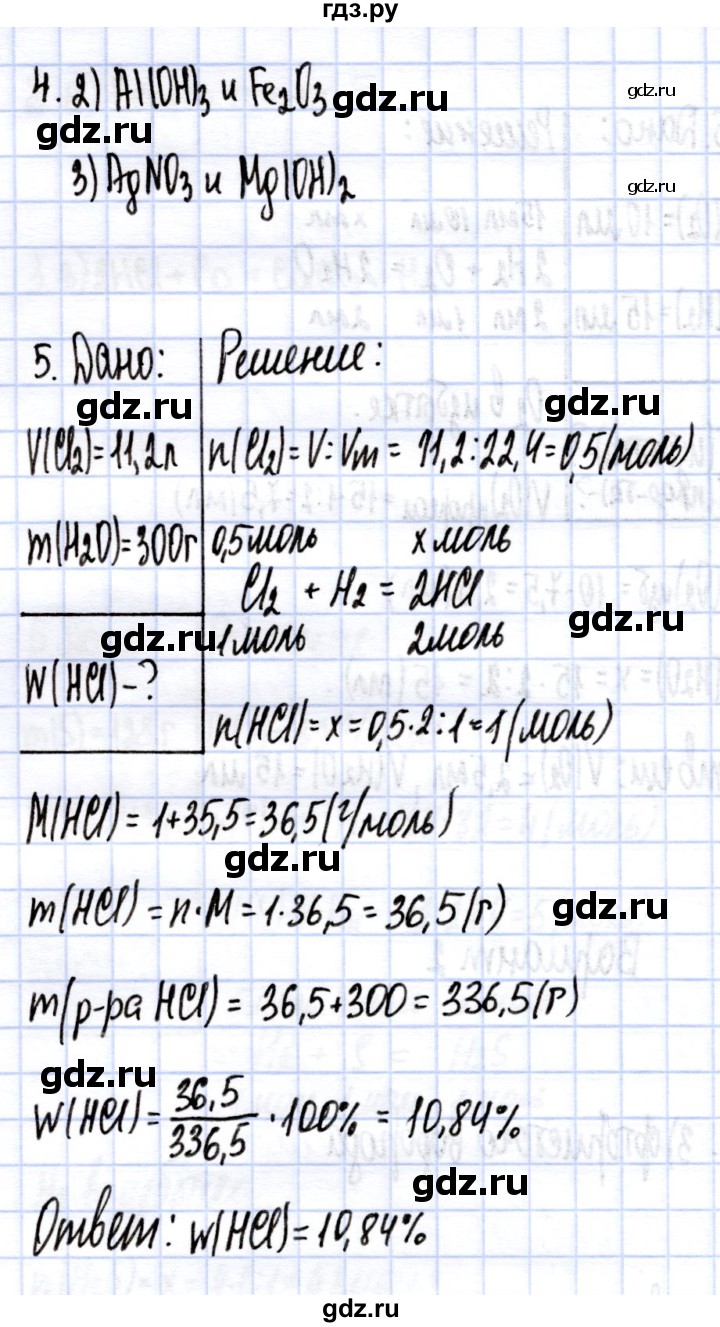 гдз.ру
4. 2) Al(OH)3 и Fe2O3
gdz.ru
gdz.ru
3) AgNO3 и Mg(OH)2
gdz.ru
5. Дано:
Решение:
gdz.ru
gdz.ru
V(Cl2)=11,2л
n(Cl2)=V:Vm = 11,2:22,4=0,5(моль)
m(H2O)=300г
0,5моль x моль
Cl2 + H2 = 2HCl
gdz.ru
gdz.ru
1моль 2моль
W(HCl)-?
n(HCl)=x=0,5·2:1=1(моль)
M(HCl)=1+35,5=36,5(г/моль)
gdz.ru
m(HCl)=n·M=1·36,5=36,5(г)
gdz.ru
m(р-ра HCl)=36,5+300=336,5(г)
gdz.ru
W(HCl)=36,5/336,5·100%=10,84%
gdz.ru
Ответ: W(HCl)=10,84%
gdz.ru